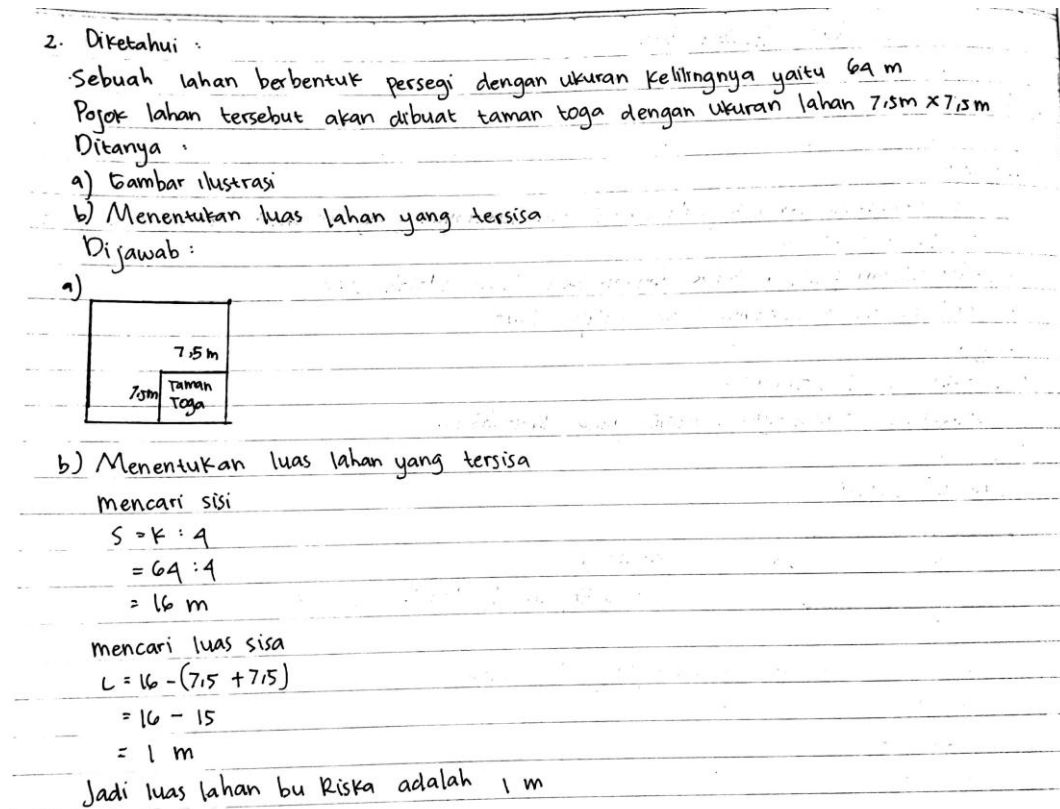 2. Diketahui :
Sebuah lahan berbentuk persegi dengan ukuran kelilingnya yaitu 64 m
Pojok lahan tersebut akan dibuat taman toga dengan ukuran lahan 7,5m x 7,5 m
Ditanya :
a) Gambar ilustrasi
b) Menentukan luas lahan yang tersisa
Dijawab :
a)
7,5 m
7,5m Taman
Toga
b) Menentukan luas lahan yang tersisa
mencari sisi
S = K : 4
= 64 : 4
= 16 m
mencari luas sisa
L = 16 - (7,5 + 7,5)
= 16 - 15
= 1 m
Jadi luas lahan bu Riska adalah 1 m